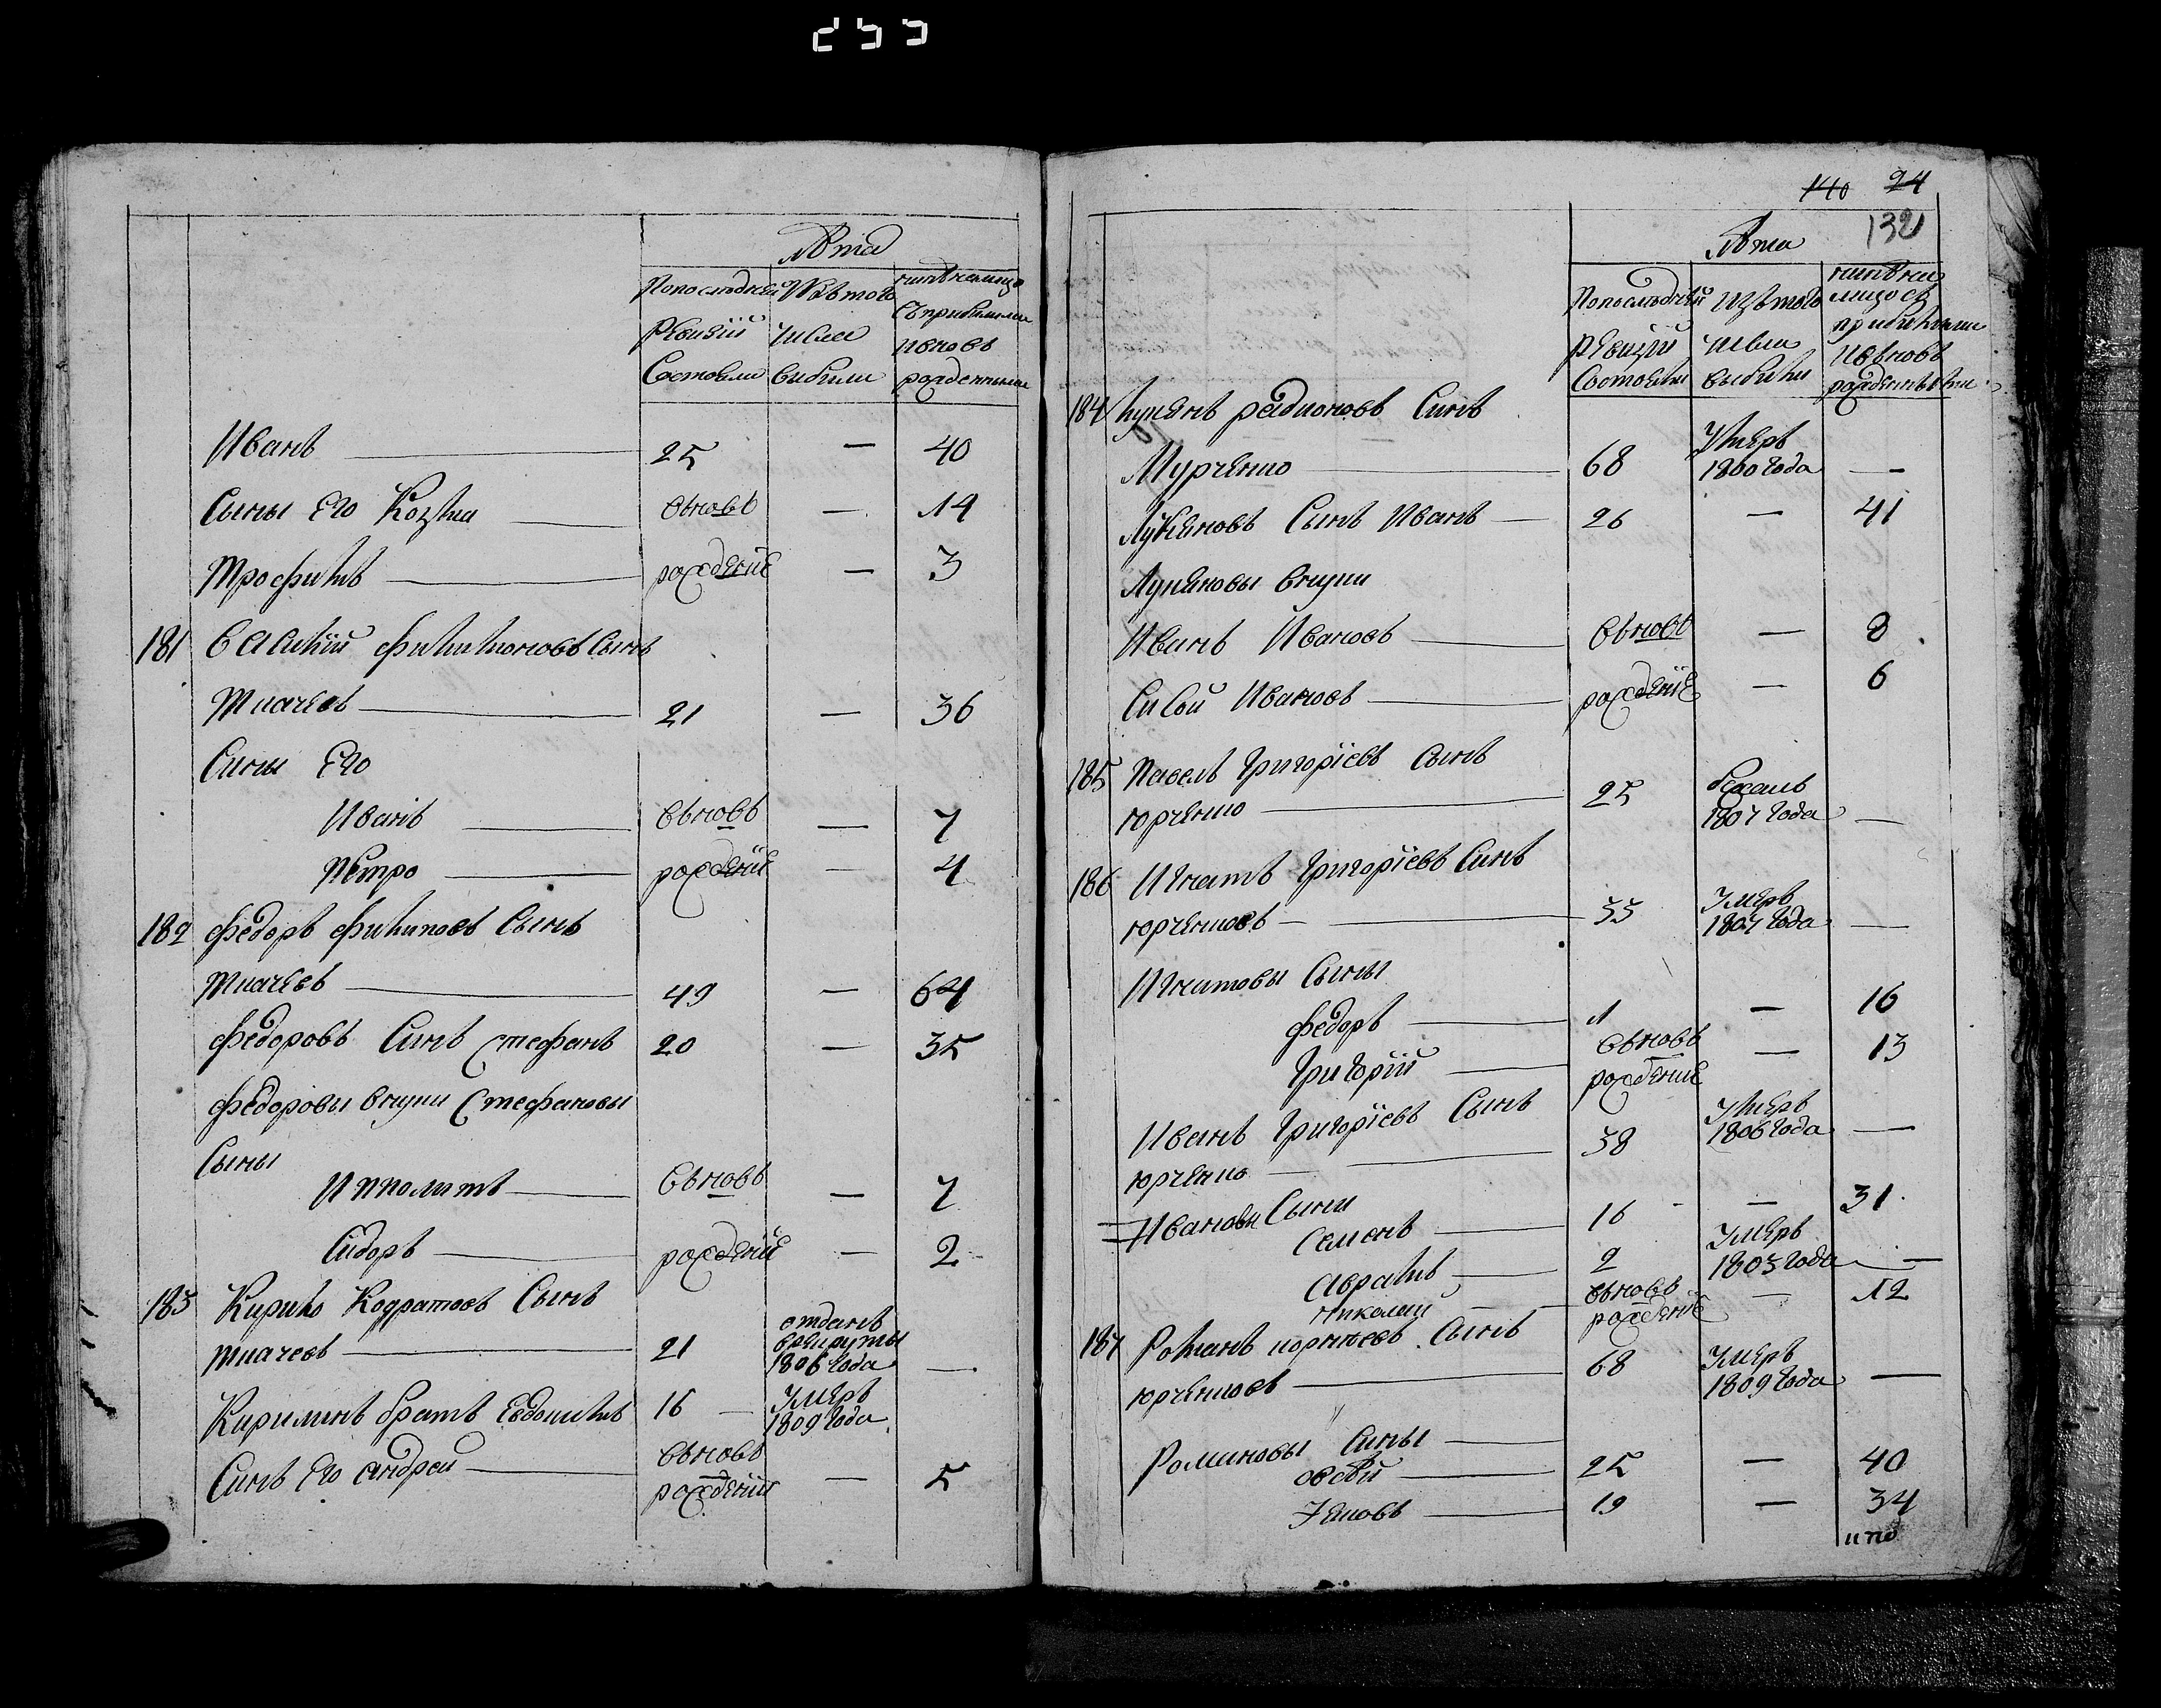 255
Лѣта
Попоследней Изътого нынѣналицо
Ревизïй числа съприбылыми
Состояли выбыли ивновь рожденными
Иванъ 25 — 40
Сыны Его Козма вьновь — 14
Трофимъ рожденïе — 3
181 Василïй Филимоновъ Сынъ
Ткачевъ 21 — 36
Сыны Его
Иванъ вьновь — 7
Петро рожденïе — 4
182 Федоръ Филиповъ Сынъ
Ткачевъ 49 — 64
Федоровъ Сынъ Стефанъ 20 — 35
Федоровы внуки Стефановы
Сыны
Ипполитъ вьновь — 7
Сидоръ рожденïе — 2
183 Кирило Кодратовъ Сынъ
Ткачевъ 21 отданъ врекруты 1806 года —
Кириловъ братъ Евдокимъ 16 — Умеръ 1809 года
Сынъ Его Андрей вьновь рожденïи — 5
140 24
132
Лѣта
Попоследней Изътого нынѣна
Ревизïй числа лицо съ прибылыми
Состояли выбыли ивьновь рожденными
184 Лукянъ Радионовъ Сынъ
Мурченко 68 Умеръ 1800 года —
Лукяновъ Сынъ Иванъ — 26 — 41
Лукяновы внуки
Иванъ Ивановъ вьновь — 8
Сисой Ивановъ рожденïе — 6
185 Павелъ Григорïевъ Сынъ
Юрченко 25 бежалъ 1807 года —
186 Игнатъ Григорïевъ Сынъ
Юрченковъ — 55 Умеръ 1807 года —
Игнатовы Сыны
Федоръ 1 — 16
Григорïй вьновь рожденïе — 13
Иванъ Григорïевъ Сынъ
Юрченко — 38 Умеръ 1806 года —
Ивановы Сыны
Семенъ 16 — 31
Аврамъ 2 Умеръ 1805 года —
Николай вьновь рожденïе — 12
187 Романъ Корнѣевъ Сынъ
Юрченковъ 68 Умеръ 1809 года —
Романовы Сыны
Овсѣй 25 — 40
Яковъ 19 — 34